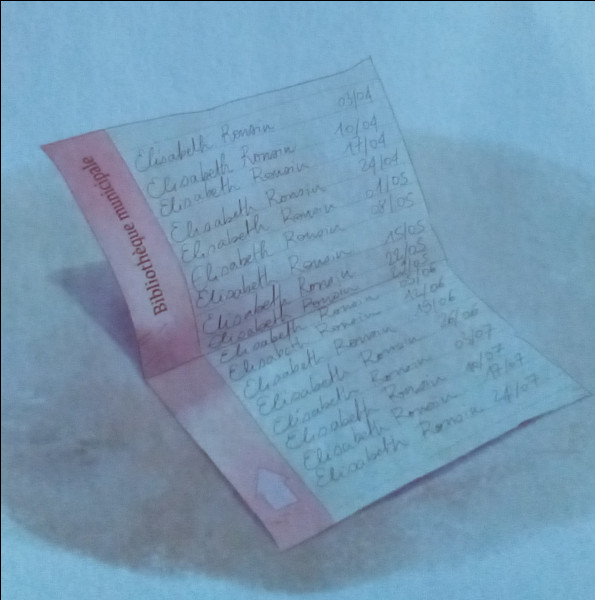 Bibliothèque municipale
Elisabeth Romain 03/04
Elisabeth Romain 10/04
Elisabeth Romain 17/04
Elisabeth Romain 24/04
Elisabeth Romain 01/05
Elisabeth Romain 08/05
Elisabeth Romain 15/05
Elisabeth Romain 22/05
Elisabeth Romain 29/05
Elisabeth Romain 05/06
Elisabeth Romain 12/06
Elisabeth Romain 19/06
Elisabeth Romain 26/06
Elisabeth Romain 03/07
Elisabeth Romain 10/07
Elisabeth Romain 17/07
Elisabeth Romain 24/07